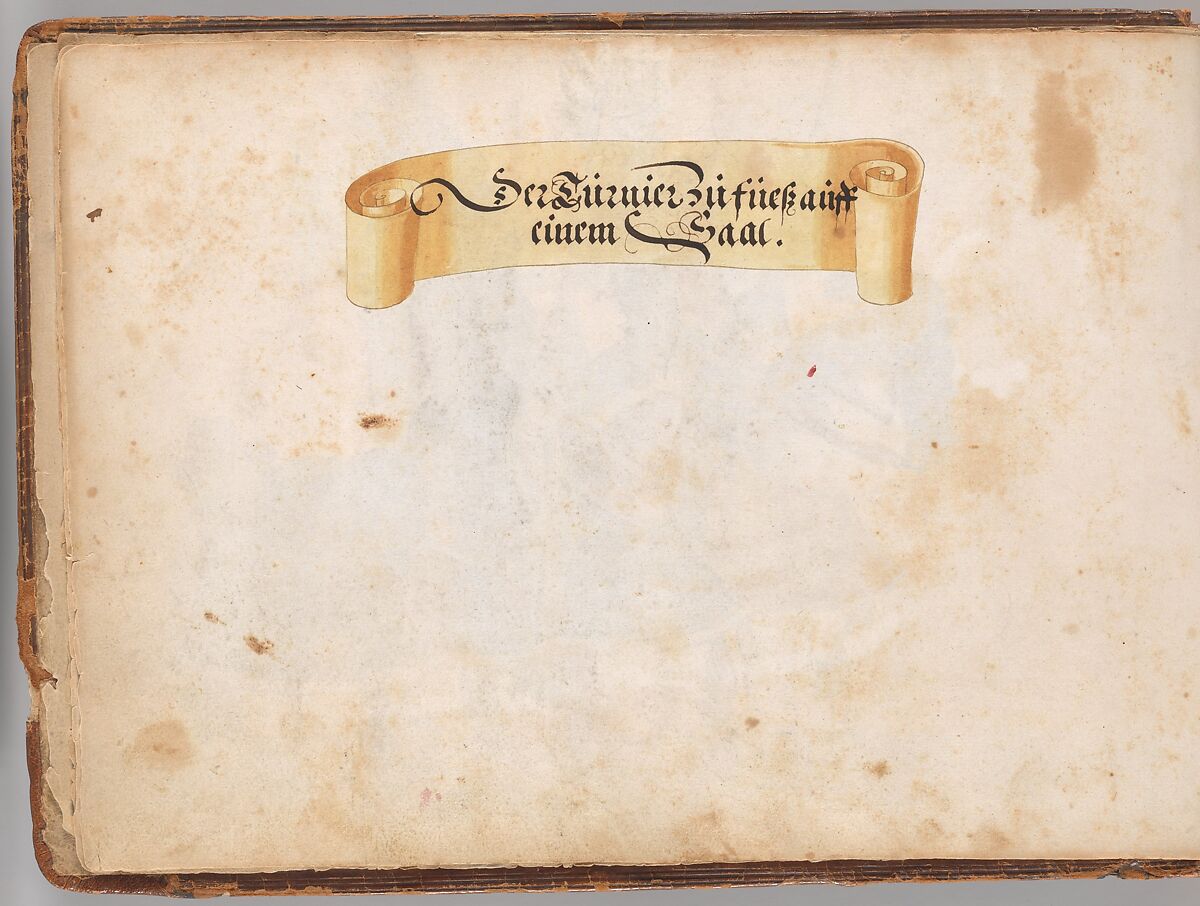 Der Turnier zu füeß auff
einem Saal.